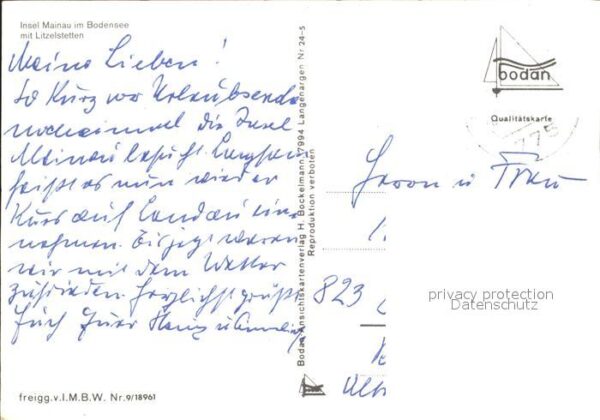 Insel Mainau im Bodensee
mit Litzelstetten
Meine Lieben!
So kurz vor Urlaubsende
nocheinmal die Insel
Mainau besucht. Langsam
heißt es nun wieder
Kurs auf Landau ein-
nehmen. Bis jetzt waren
wir mit dem Wetter
zufrieden. Herzlichst grüßt
Euch Euer
freigg.v.I.M.B.W. Nr.9/18961
Bodan-Ansichtskartenverlag H. Bockelmann 7994 Langenargen Nr 24-5
Reproduktion verboten
bodan
Qualitätskarte
775
Herrn u Frau
823
privacy protection
Datenschutz